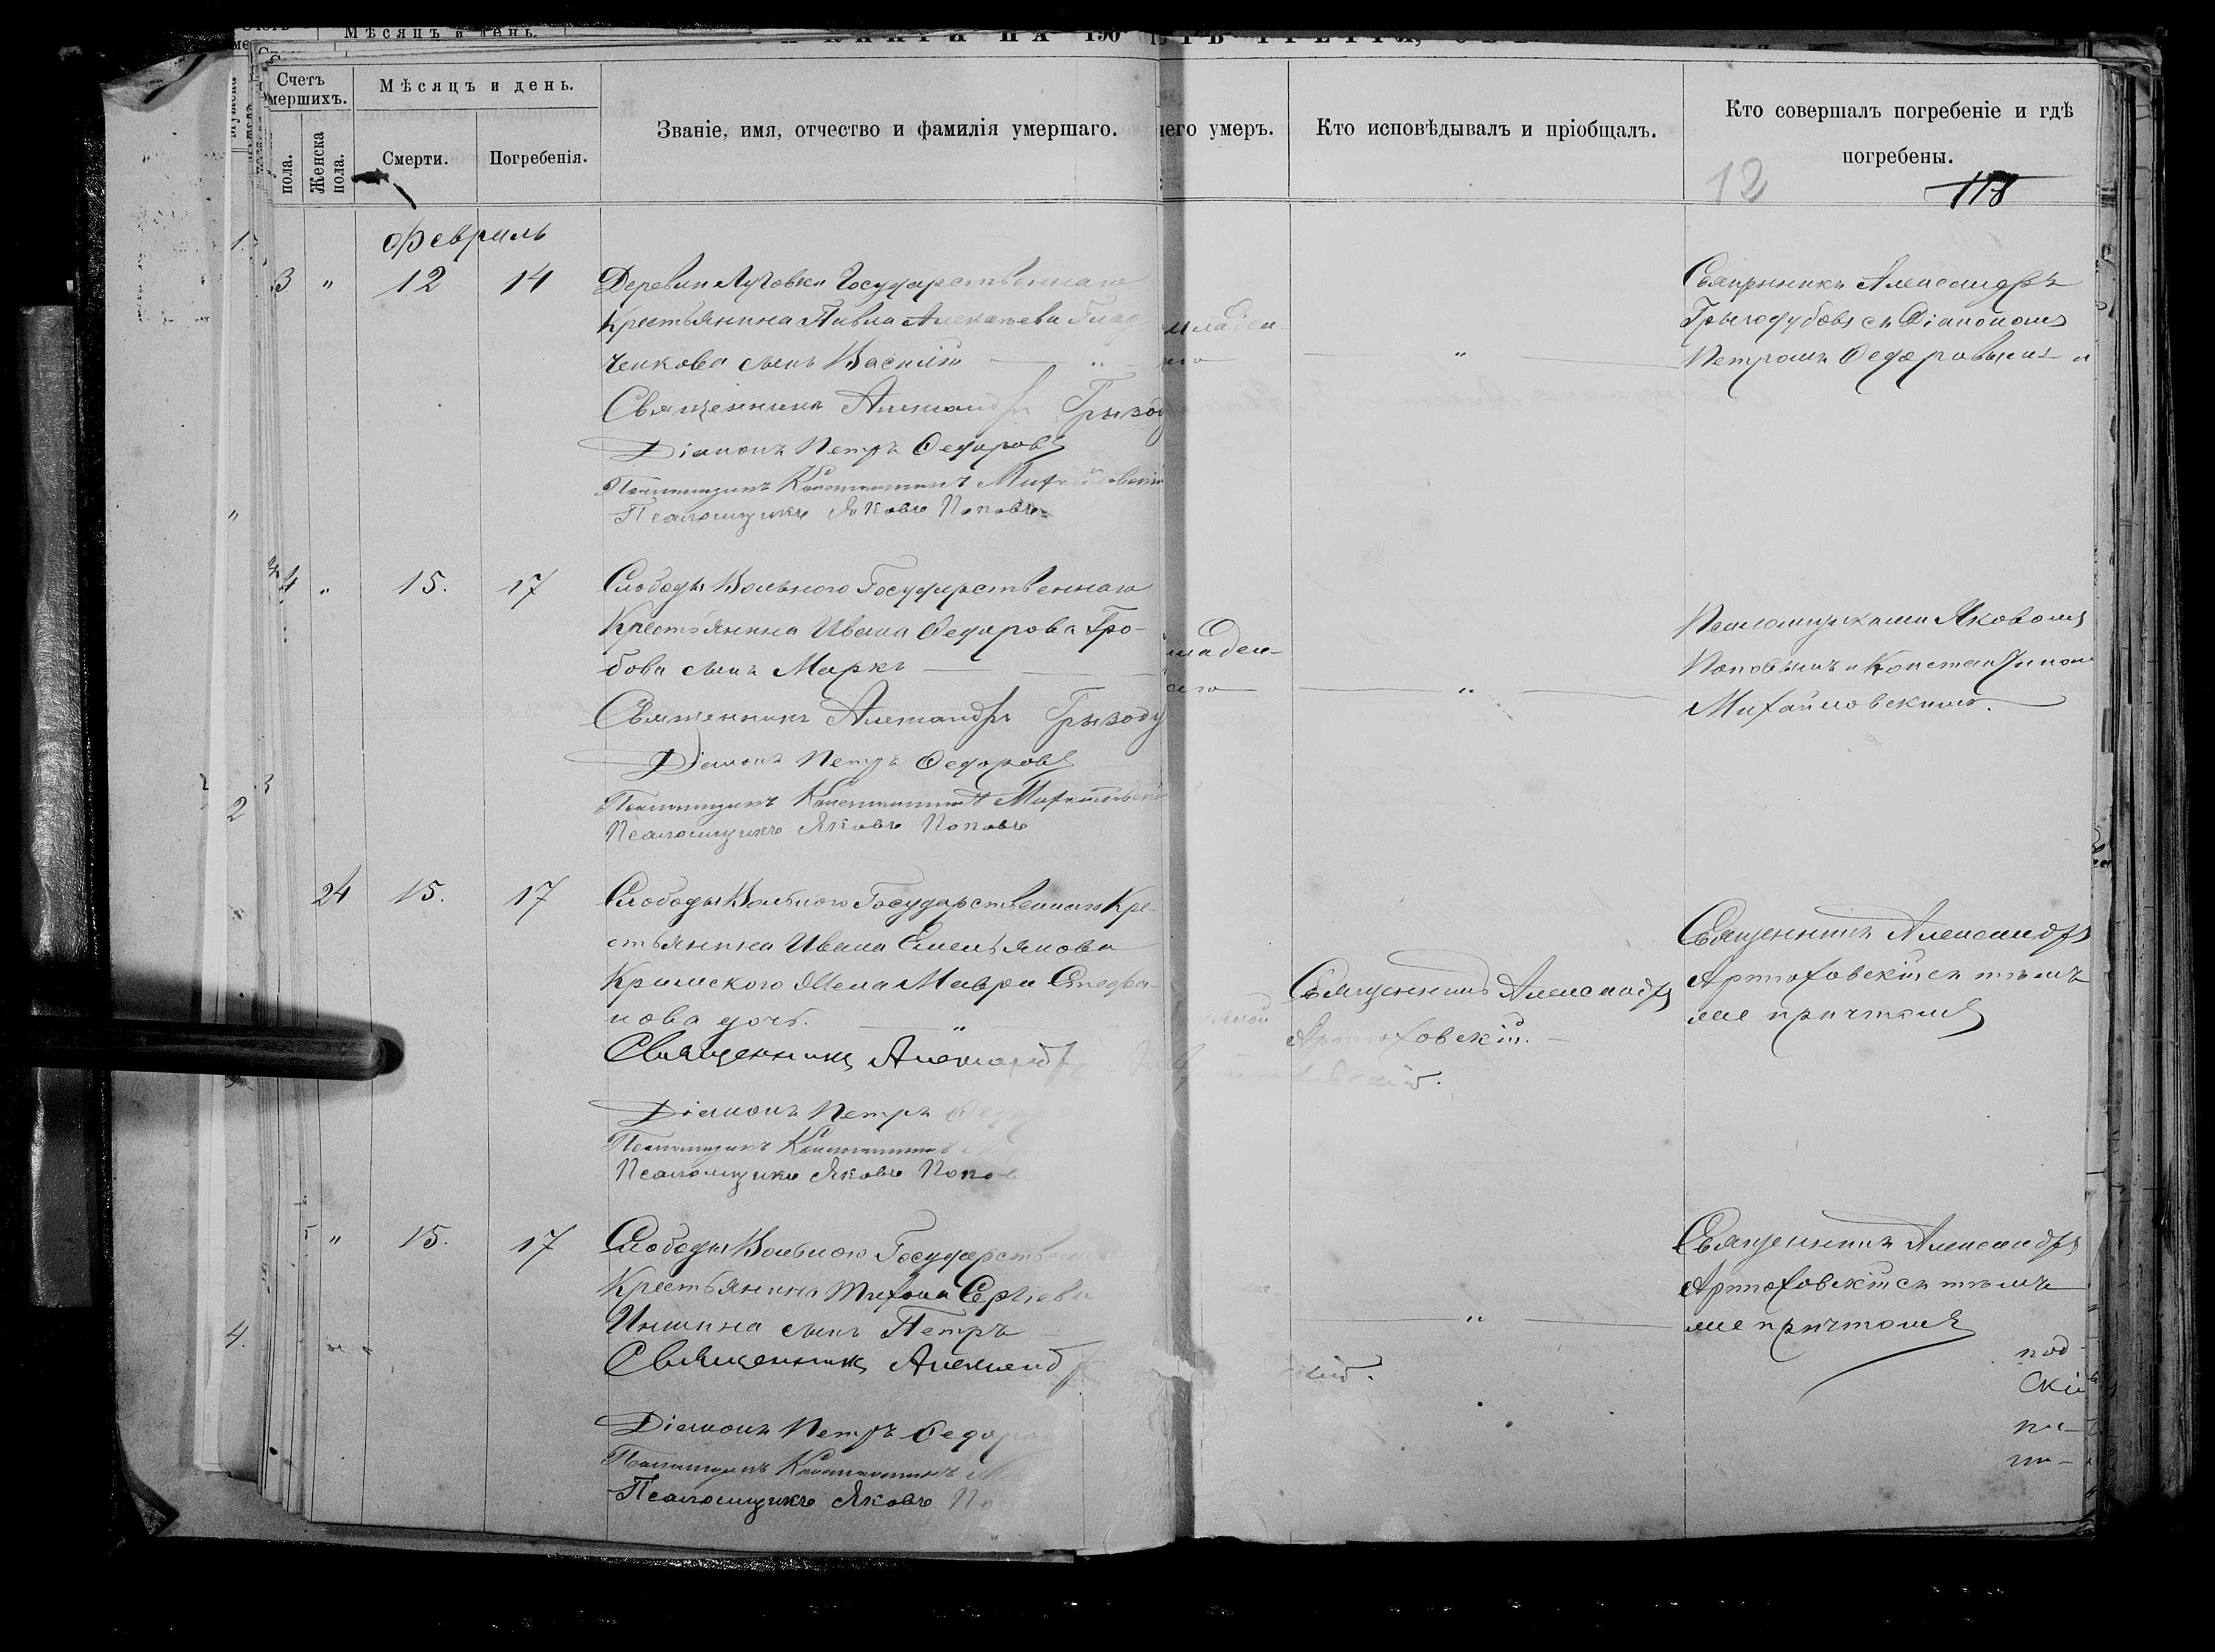 Мѣсяцъ и день.
КНИГИ НА 190
Счетъ
мершихъ.
Мѣсяцъ и день.
Званіе, имя, отчество и фамилія умершаго.
чего умеръ.
Кто исповѣдывалъ и пріобщалъ.
Кто совершалъ погребеніе и гдѣ
погребены.
пола.
Женска
пола.
Смерти.
Погребенія.
12
118
Февраль
3 " 12 14
Деревни Луговки Государственнаго
Крестьянина Павла Алексѣева
ченкова сынъ Василій
Священникъ Александръ Грызод
Діаконъ Петръ Ѳедоровъ
Псаломщикъ Константинъ Михайловскій
Псаломщикъ Яковъ Поповъ
младен-
"
Священникъ Александръ
съ Діакономъ
Петромъ Ѳедоровымъ и
4 " 15. 17
Слободы Вольного Государственнаго
Крестьянина Ивана Ѳедорова Гро-
бова сынъ Маркъ
Священникъ Александръ Грызоду
Діаконъ Петръ Ѳедоровъ
Псаломщикъ Константинъ Михайловскій
Псаломщикъ Яковъ Поповъ
младен-
"
Псаломщиками Яковомъ
Поповымъ и Константиномъ
Михайловскимъ.
2
24 15. 17
Слободы Вольного Государственнаго Кре-
стьянина Ивана Емельянова
Кримского Жена Мавра Стефа-
нова дочь. "
Священникъ Александръ
Діаконъ Петръ
Псаломщикъ Константинъ
Псаломщикъ Яковъ Попов
Священникъ Александръ
Артюховскій.
Священникъ Александръ
Артюховскій съ тѣмъ
же причтомъ
5 " 15. 17
Слободы Вольного Государствен
Крестьянина Тихона Сергѣева
сынъ Петръ
Священникъ Александ
Діаконъ Петръ Ѳедоров
Псаломщикъ Константинъ
Псаломщикъ Яковъ По
"
кій.
Священникъ Александръ
Артюховскій съ тѣмъ
же причтомъ
4.
под
скі